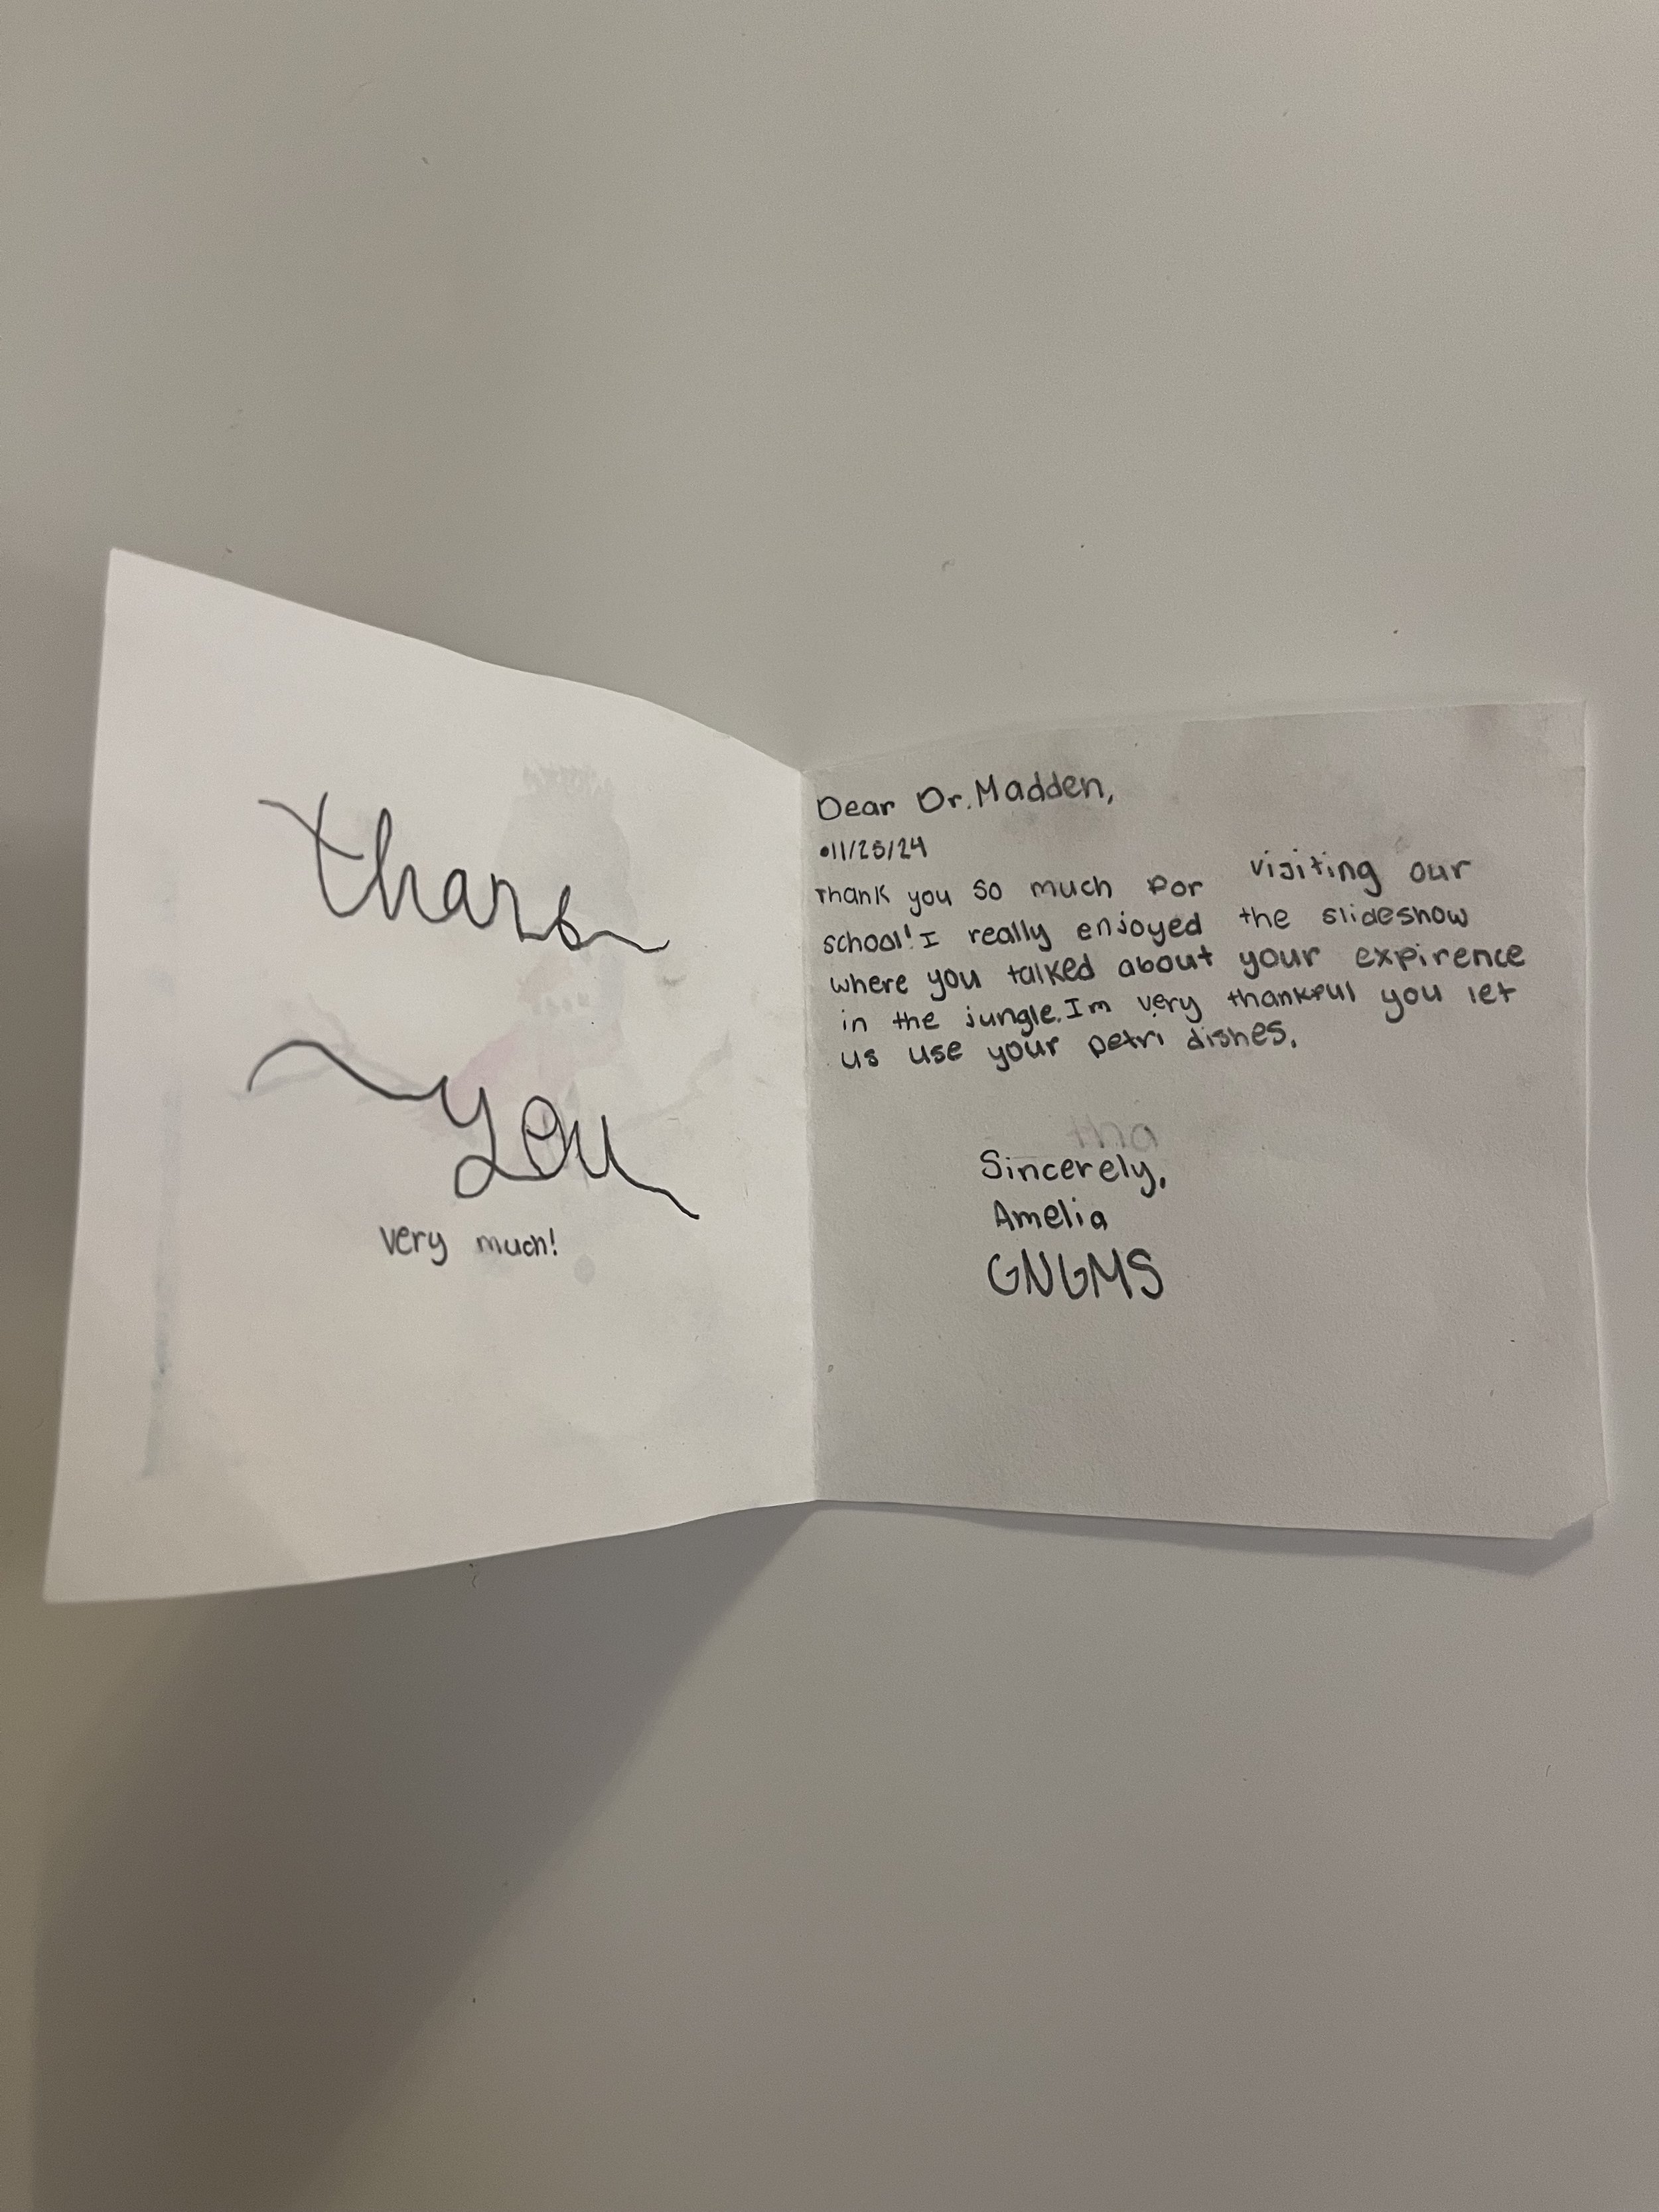 Thank
You
very much!
Dear Dr. Madden,
•11/25/24
Thank you so much for visiting our
school! I really enjoyed the slideshow
where you talked about your expirence
in the jungle. Im very thankful you let
us use your petri dishes.
tha
Sincerely,
Amelia
GNGMS